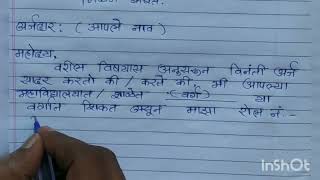 अर्जदार: ( आपले नाव )
महोदय,
वरील विषयास अनुसरून विनंती अर्ज
सादर करतो की / करते की, मी आपल्या
महाविद्यालयात / शाळेत (वर्ग) या
वर्गात शिकत असून माझा रोल नं. -
InShot